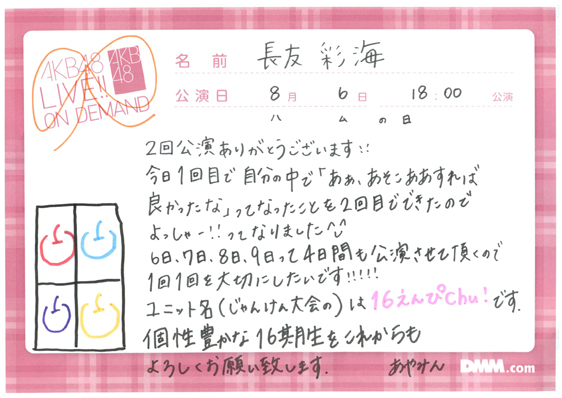 AKB48
LIVE!!
ON DEMAND
AKB
48
名前 長友 彩海
公演日 8月 6日 18:00 公演
ハ ム の 日
2回公演ありがとうございます!!
今日1回目で自分の中で「あぁ、あそこああすれば
良かったな」ってなったことを2回目でできたので
よっしゃー!!ってなりました^^
6日、7日、8日、9日って4日間も公演させて頂くので
1回1回を大切にしたいです!!!!!
ユニット名(じゃんけん大会の)は16えんぴChu!です.
個性豊かな16期生をこれからも
よろしくお願い致します. あやみん
DMM.com